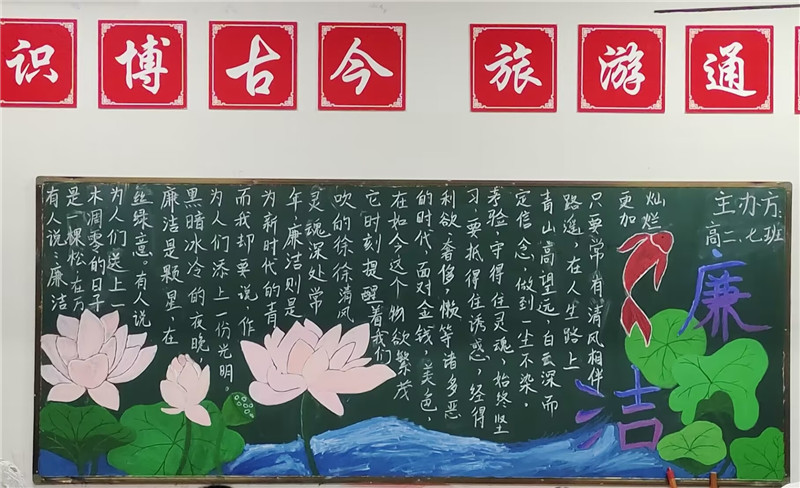 识博古今
旅游通
主办方:
高二、七班
廉洁
有人说:廉洁
是一棵松,在万
木凋零的日子
为人们送上一
丝绿意。有人说
廉洁是颗星,在
黑暗冰冷的夜晚
为人们添上一份光明。
而我却要说,作
为新时代的青
年,廉洁则是
灵魂深处常
吹的徐徐清风
它时刻提醒着我们
在如今这个物欲繁茂
的时代,面对金钱,美色,
利欲、奢侈、懒等诸多恶
习,要抵得住诱惑,经得
考验,守得住灵魂,始终坚
定信念,做到一生不染。
青山高望远,白云深而
路遥,在人生路上
只要常有清风相伴
更加
灿烂